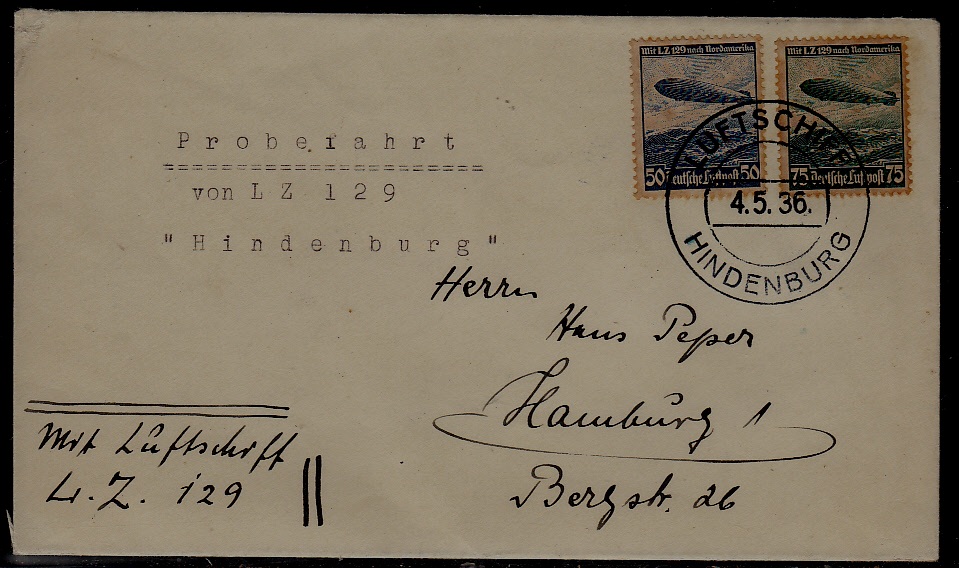 Mit LZ 129 nach Nordamerika
50 Deutsche Luftpost 50
Mit LZ 129 nach Nordamerika
75 Deutsche Luftpost 75
LUFTSCHIFF
4.5.36.
HINDENBURG
Probefahrt
von LZ 129
"Hindenburg"
Herrn
Hans Peper
Hamburg 1
Bergstr. 26
Mit Luftschiff
L.Z. 129